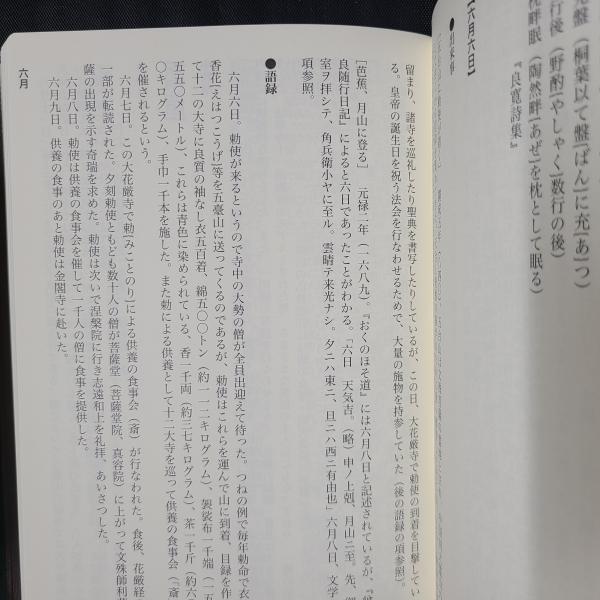 【六月六日】
尭盤 (桐葉以て盤[ばん]に充[あ]つ)
行後 (野酌[やしゃく]数行の後)
枕畔眠 (陶然畔[あぜ]を枕として眠る)
『良寛詩集』
留まり、諸寺を巡礼したり聖典を書写したりしているが、この日、大花厳寺で勅使の到着を目撃してい
る。皇帝の誕生日を祝う法会を行なわせるためで、大量の施物を持参していた(後の語録の項参照)。
[芭蕉、月山に登る] 元禄二年(一六八九)。『おくのほそ道』には六月八日と記述されているが、『曽
良随行日記』によると六日であったことがわかる。「六日 天気吉。(略)申ノ上剋、月山ニ至。先、御
室ヲ拝シテ、角兵衛小ヤに至ル。雲晴テ来光ナシ。夕ニハ東ニ、旦ニハ西ニ有由也」六月八日、文学
項参照。
●語録
六月六日。勅使が来るというので寺中の大勢の僧が全員出迎えて待った。つねの例で毎年勅命で衣
香花[えはつこうげ]等を五臺山に送ってくるのであるが、勅使はこれらを運んで山に到着、目録を作
て十二の大寺に良質の袖なし衣五百着、綿五〇〇トン(約一一二キログラム)、袈裟布一千端(一五
五〇メートル)、これらは青色に染められている、香一千両(約三七キログラム)、茶一千斤(約六
〇キログラム)、手巾一千本を施した。また勅による供養として十二大寺を巡って供養の食事会(斎
を催されるという。
六月七日。この大花厳寺で勅[みことのり]による供養の食事会(斎)が行なわれた。食後、花厳経
一部が転読された。夕刻勅使ともども数十人の僧が菩薩堂(菩薩堂院、真容院)に上がって文殊師利菩
薩の出現を示す奇瑞を求めた。勅使は次いで涅槃院に行き志遠和上を礼拝、あいさつした。
六月八日。勅使は供養の食事会を催して一千人の僧に食事を提供した。
六月九日。供養の食事のあと勅使は金閣寺に赴いた。
六月